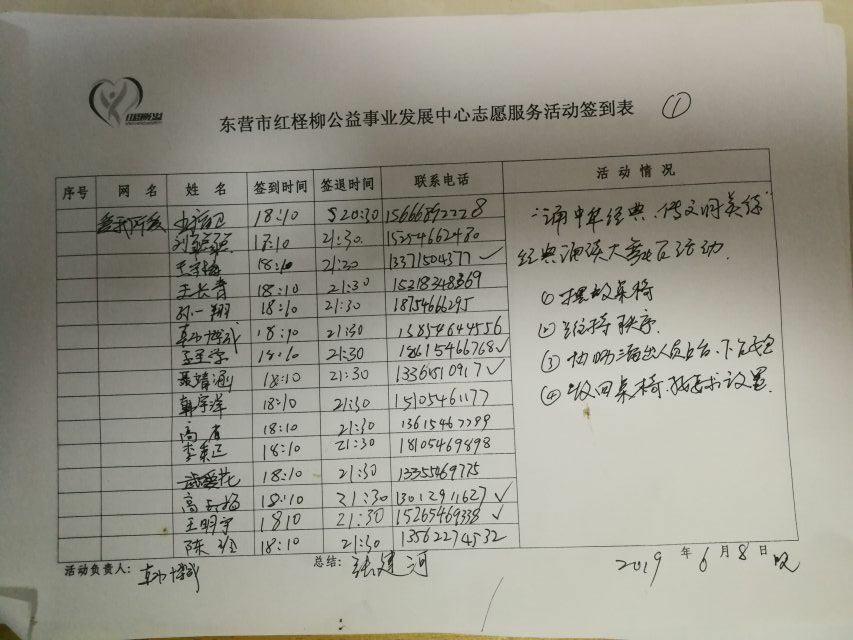 东营市红柽柳公益事业发展中心志愿服务活动签到表 ①
序号 网名 姓名 签到时间 签退时间 联系电话 活动情况
18:10 20:30 15666892228
18:10 21:30. 15254662480
18:10 21:30 13371504377 ✓
王长青 18:10 21:30 15318348369
孙一翔 18:10 21:30 18754666295
韩博武 18:10 21:30 13854644556
18:10 21:30 18615466768 ✓
聂靖涵 18:10 21:30 13361510917 ✓
韩宇洋 18:10 21:30 15105461177
18:10 21:30 13615467799
李秉正 18:10 21:30 18105469898
18:10 21:30 13355469775
高云杨 18:10 21:30 13012911627 ✓
王明宇 1810 21:30 15265469338 ✓
陈 18:10 21:30 13562274532
"诵中华经典、传文明美德"
经典诵读大赛 活动.
①摆放桌椅
②维持秩序.
③协助演出人员上台、下台
④收回桌椅 按要求设置.
活动负责人: 韩博武 总结: 张建河 2019 年 6 月 8 日